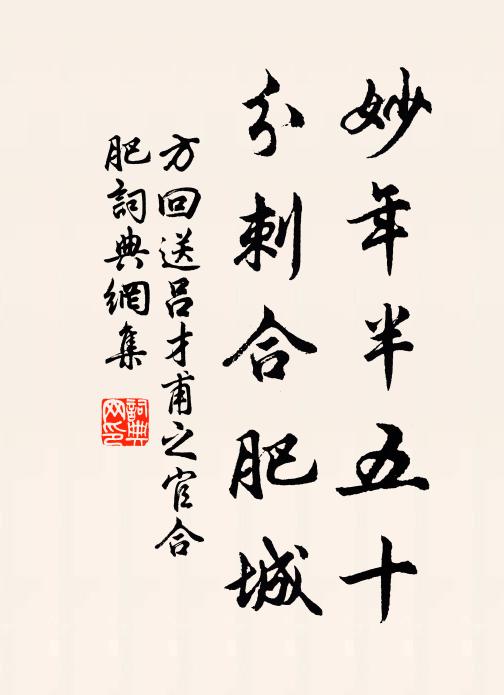 妙年半五十
分刺合肥城
方回送吕才甫之官合
肥詞典網集
詞典
网印